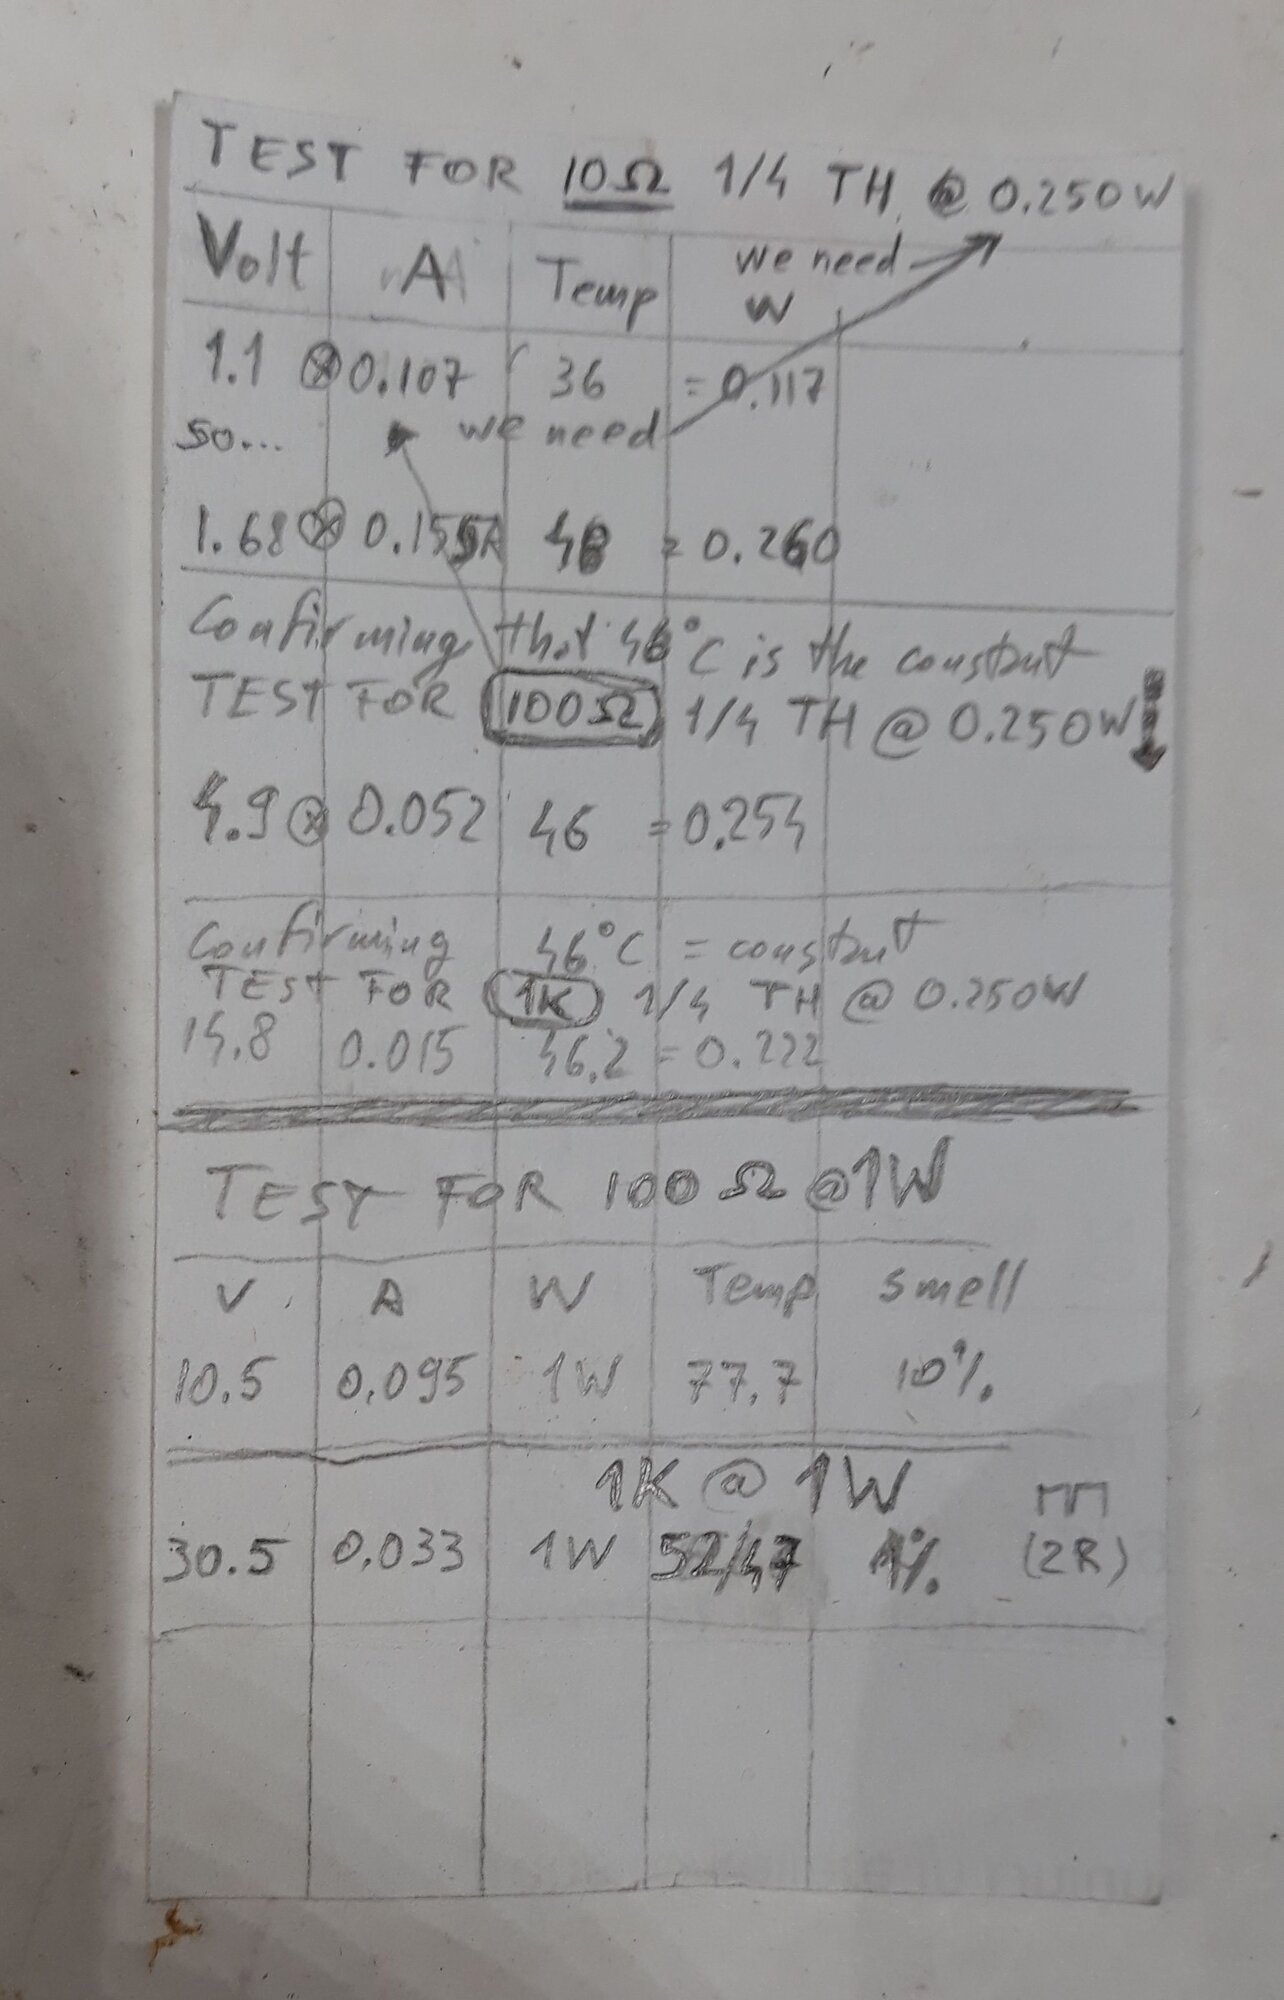 TEST FOR 10Ω 1/4 TH @ 0.250W
Volt A Temp we need W
1.1 ⊗ 0.107 36 = 0.117
so... we need
1.68 ⊗ 0.155A 46 = 0.260
Confirming that 46°C is the constant
TEST FOR 100Ω 1/4 TH @ 0.250W
4.9 ⊗ 0.052 46 = 0.254
Confirming 46°C = constant
TEST FOR 1K 1/4 TH @ 0.250W
14.8 0.015 46.2 = 0.222
TEST FOR 100Ω @1W
V A W Temp smell
10.5 0.095 1W 77.7 10%
1K @ 1W
30.5 0.033 1W 52/47 1% (2R)